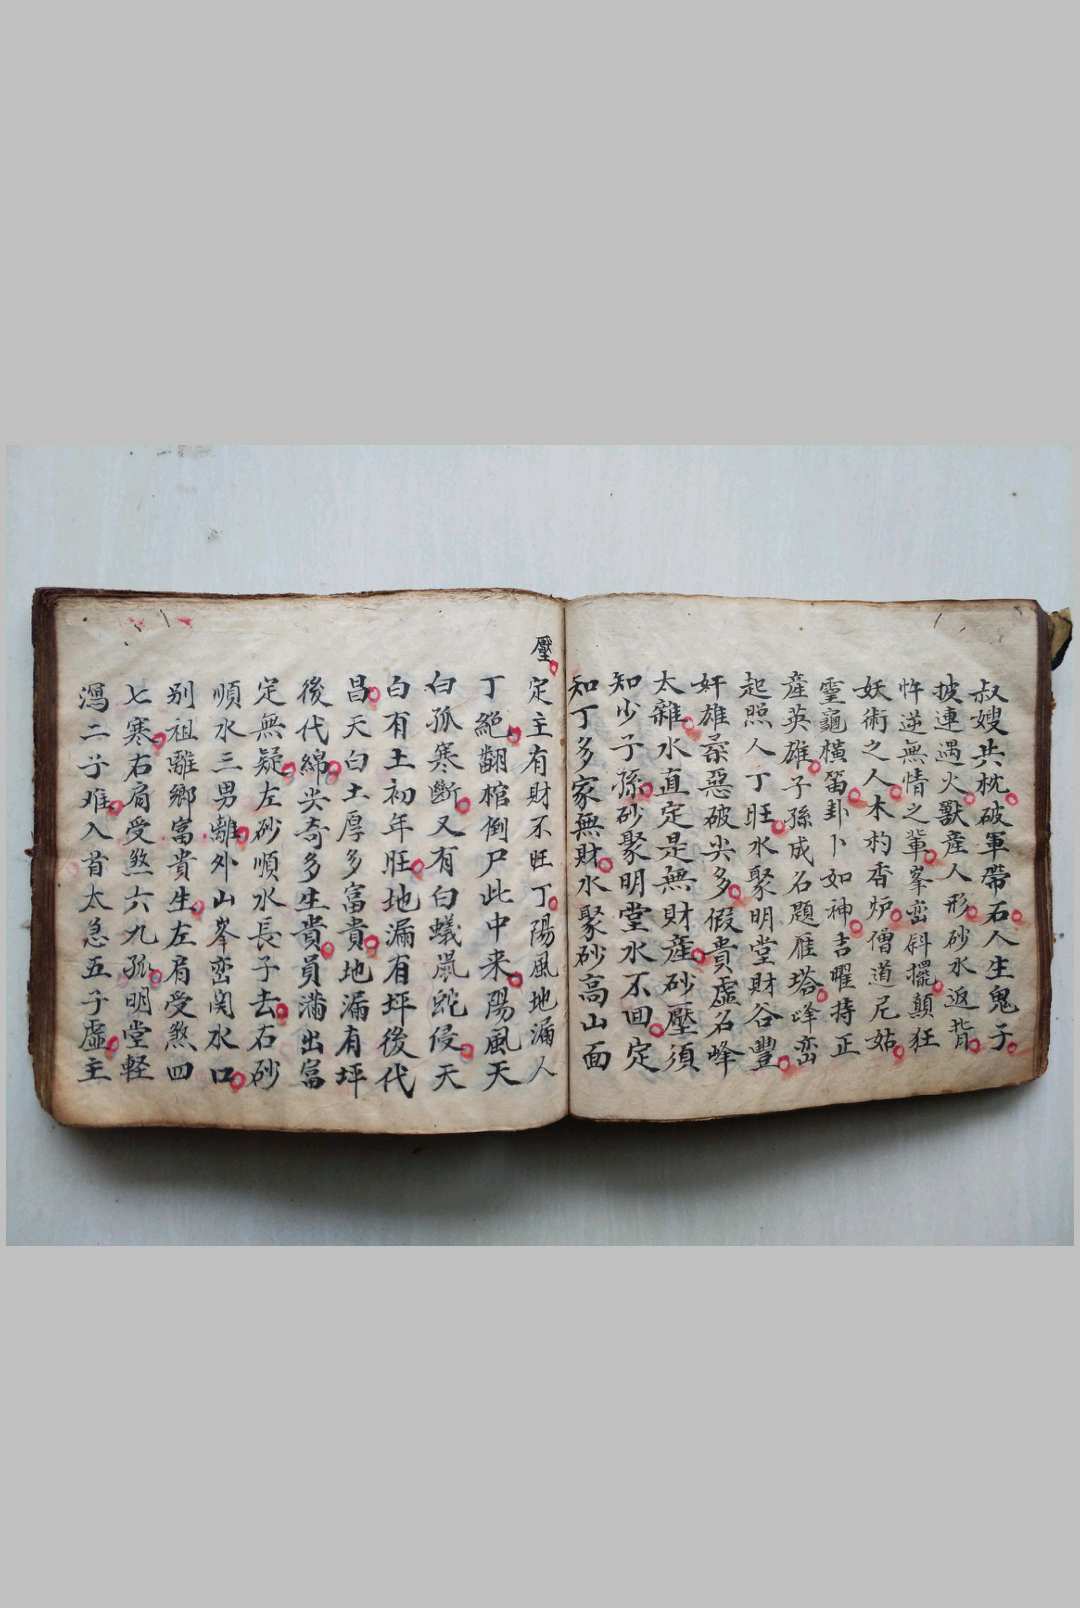 叔嫂共枕破軍帶石人生鬼子
披連遇火獸產人形砂水返背
忤逆無情之輩峯峦斜擺顛狂
妖術之人木杓香炉僧道尼姑
靈龜橫笛卦卜如神吉曜持正
產英雄子孫成名題雁塔峰峦
起照人丁旺水聚明堂財谷豐
奸雄桑惡破尖多假貴虛名峰
太雜水直定是無財產砂壓須
知少子孫砂聚明堂水不回定
知丁多家無財水聚砂高山面
壓
定主有財不旺丁陽風地漏人
丁絕翻棺倒尸此中来陽風天
白孤寒斷又有白蟻鼠蛇侵天
白有土初年旺地漏有坪後代
昌天白土厚多富貴地漏有坪
後代綿尖奇多生貴員滿出富
定無疑左砂順水長子去右砂
順水三男離外山峯峦関水口
别祖離鄉富貴生左肩受煞四
七寒右肩受煞六九孤明堂軽
瀉二子难入首太急五子虛主